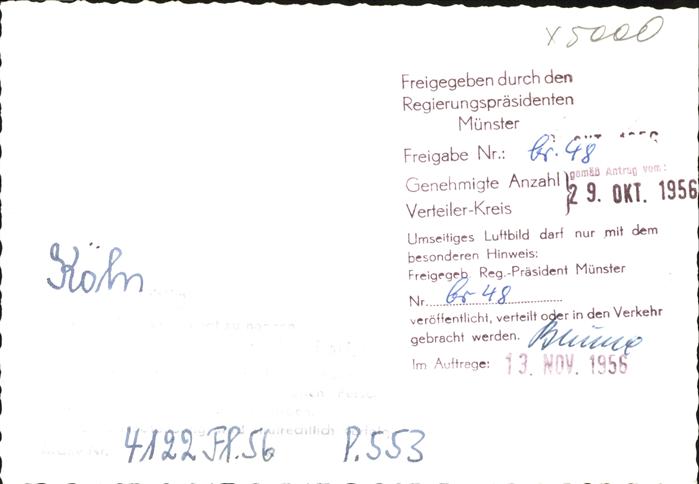 x 5000
Freigegeben durch den
Regierungspräsidenten
Münster
Freigabe Nr.: br. 48
Genehmigte Anzahl
gemäß Antrag vom:
29. OKT. 1956
Verteiler-Kreis
Umseitiges Luftbild darf nur mit dem
besonderen Hinweis:
Freigegeb Reg.-Präsident Münster
Nr. br 48
veröffentlicht, verteilt oder in den Verkehr
gebracht werden.
Im Auftrage: 13. NOV. 1956
Köln
4122 Fl. 56 P. 553